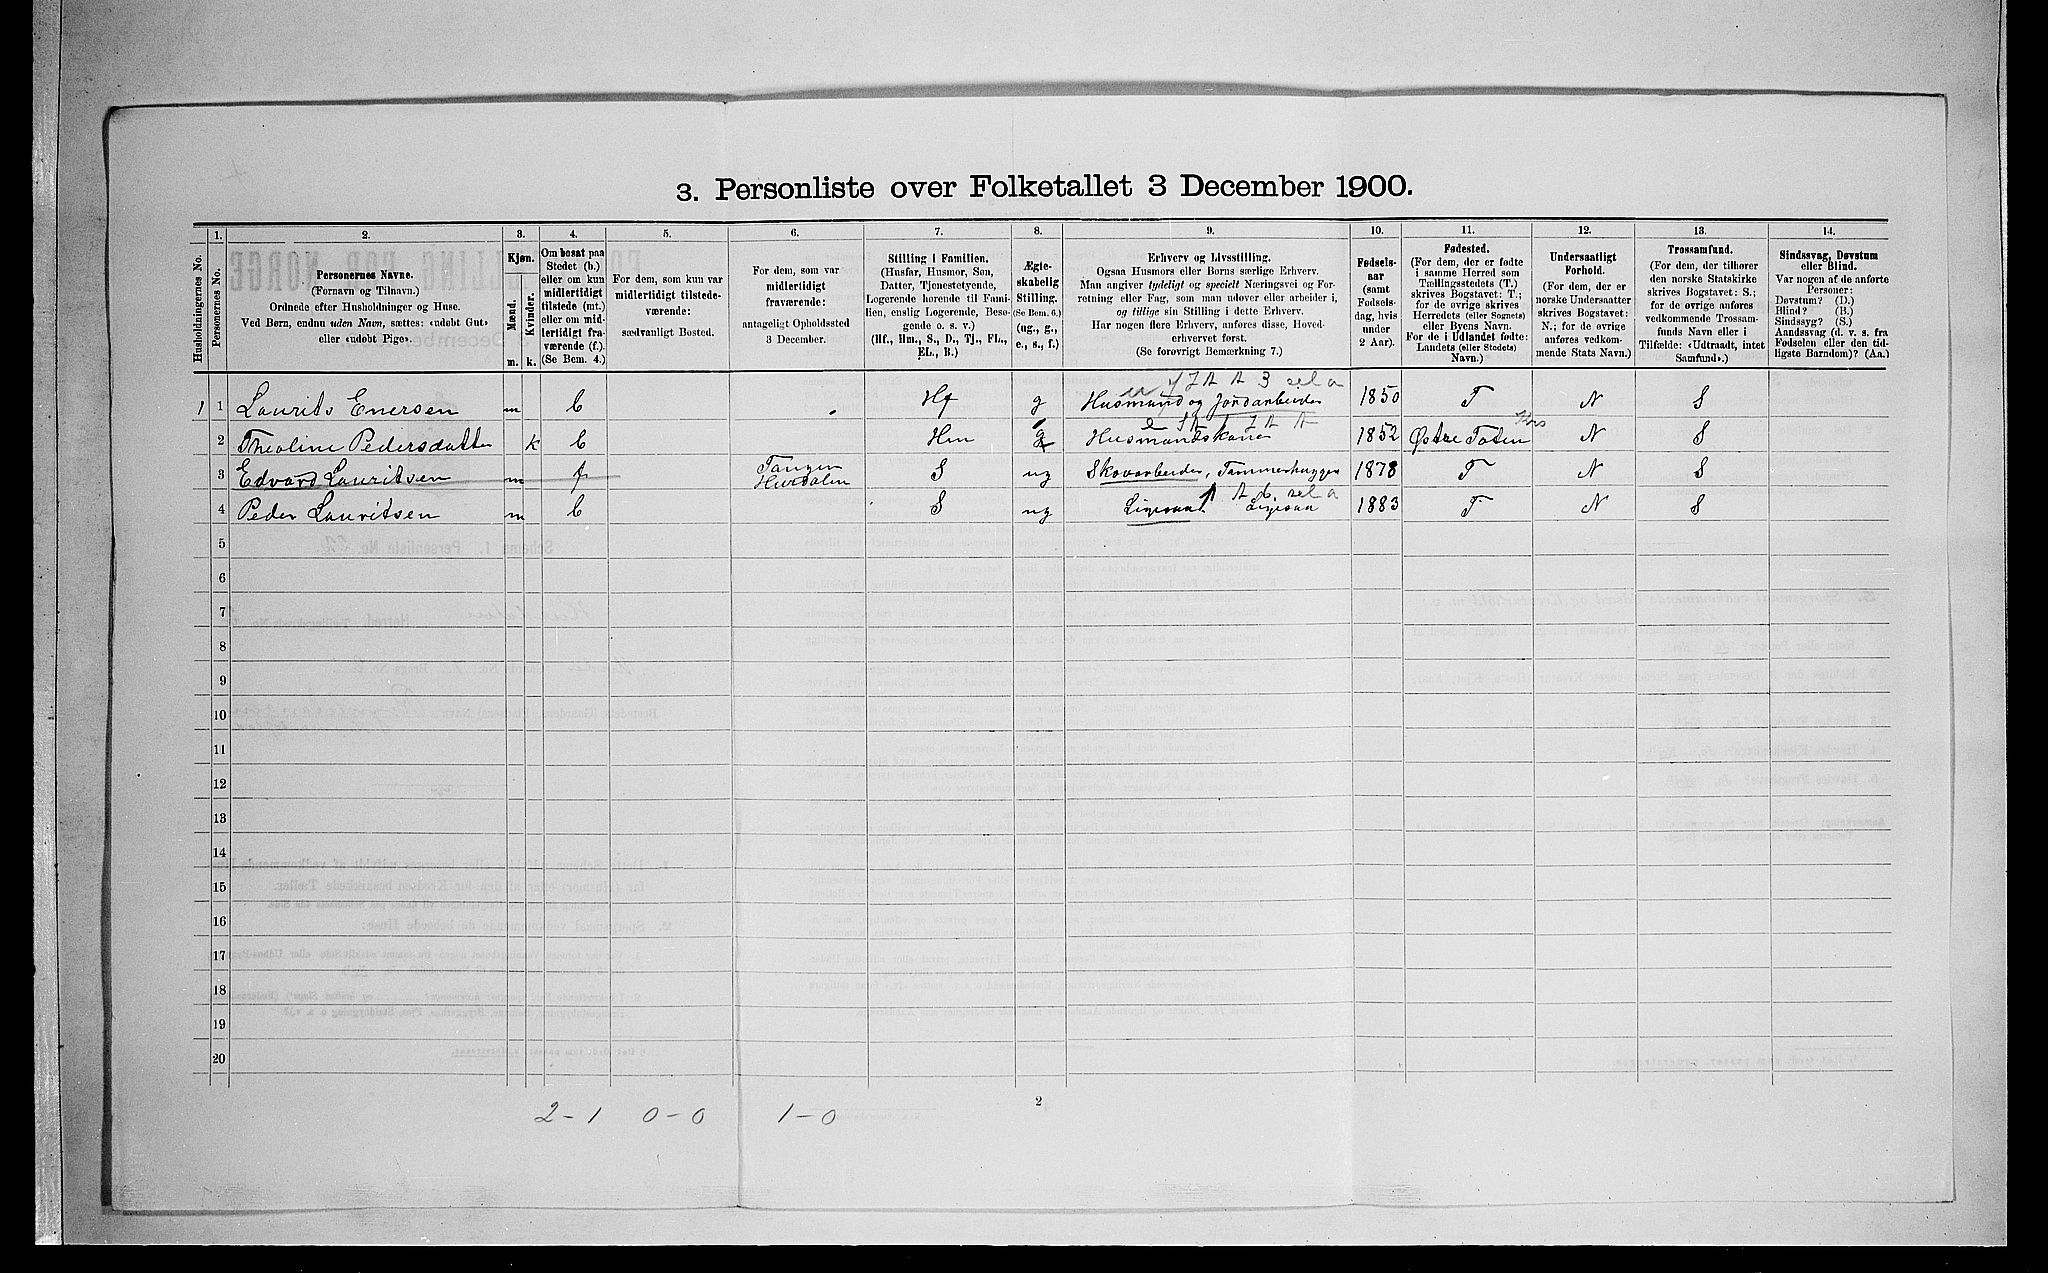 3. Personliste over Folketallet 3 December 1900.
Husholdningernes No.
1.
Personernes No.
2.
Personernes Navne.
(Fornavn og Tilnavn.)
Ordnede efter Husholdninger og Huse.
Ved Børn, endnu uden Navn, sættes: «udøbt Gut»
eller «udøbt Pige».
3.
Kjøn.
Mænd. Kvinder.
m. k.
4.
Om bosat paa
Stedet (b.)
eller om kun
midlertidigt
tilstede (mt.)
eller om mid-
lertidigt fra-
værende (f.).
(Se Bem. 4.)
5.
For dem, som kun var
midlertidigt tilstede-
værende:
sædvanligt Bosted.
6.
For dem, som var
midlertidigt
fraværende:
antageligt Opholdssted
3 December.
7.
Stilling i Familien.
(Husfar, Husmor, Søn,
Datter, Tjenestetyende,
Logerende hørende til Fami-
lien, enslig Logerende, Besø-
gende o. s. v.)
(Hf., Hm., S., D., Tj., FL.,
EL., B.)
8.
Ægte-
skabelig
Stilling.
(Se Bem. 6.)
(ug., g.,
e., s., f.)
9.
Erhverv og Livsstilling.
Ogsaa Husmors eller Børns særlige Erhverv.
Man angiver tydeligt og specielt Næringsvei og For-
retning eller Fag, som man udøver eller arbeider i,
og tillige sin Stilling i dette Erhverv.
Har nogen flere Erhverv, anføres disse, Hoved-
erhvervet først.
(Se forøvrigt Bemærkning 7.)
10.
Fødsels-
aar
(samt
Fødsels-
dag, hvis
under
2 Aar).
11.
Fødested.
(For dem, der er fødte
i samme Herred som
Tællingsstedets (T.)
skrives Bogstavet: T.;
for de øvrige skrives
Herredets (eller Sognets)
eller Byens Navn.
For de i Udlandet fødte:
Landets (eller Stedets)
Navn.)
12.
Undersaatligt
Forhold.
(For dem, der er
norske Undersaatter
skrives Bogstavet:
N.; for de øvrige
anføres vedkom-
mende Stats Navn.)
13.
Trossamfund.
(For dem, der tilhører
den norske Statskirke
skrives Bogstavet: S.;
for de øvrige anføres
vedkommende Trossam-
funds Navn eller i
Tilfælde: «Udtraadt, intet
Samfund».)
14.
Sindssvag, Døvstum
eller Blind.
Var nogen af de anførte
Personer:
Døvstum? (D.)
Blind? (B.)
Sindssyg? (S.)
Aandssvag (d. v. s. fra
Fødselen eller den tid-
ligste Barndom)? (Aa.)
1 1 Laurits Enersen m b Hf g Husmand og Jordarbeider 1850 T N S
2 Theoline Pedersdatter k b Hm g Husmandskone 1852 Østre Toten N S
3 Edvard Lauritsen m f Tangen Hurdalen S ug Skovarbeider, Tømmerhugger 1878 T N S
4 Peder Lauritsen m b S ug Ligesaa. Ligesaa 1883 T N S
5
6
7
8
9
10
11
12
13
14
15
16
17
18
19
20
2-1 0-0 1-0
2